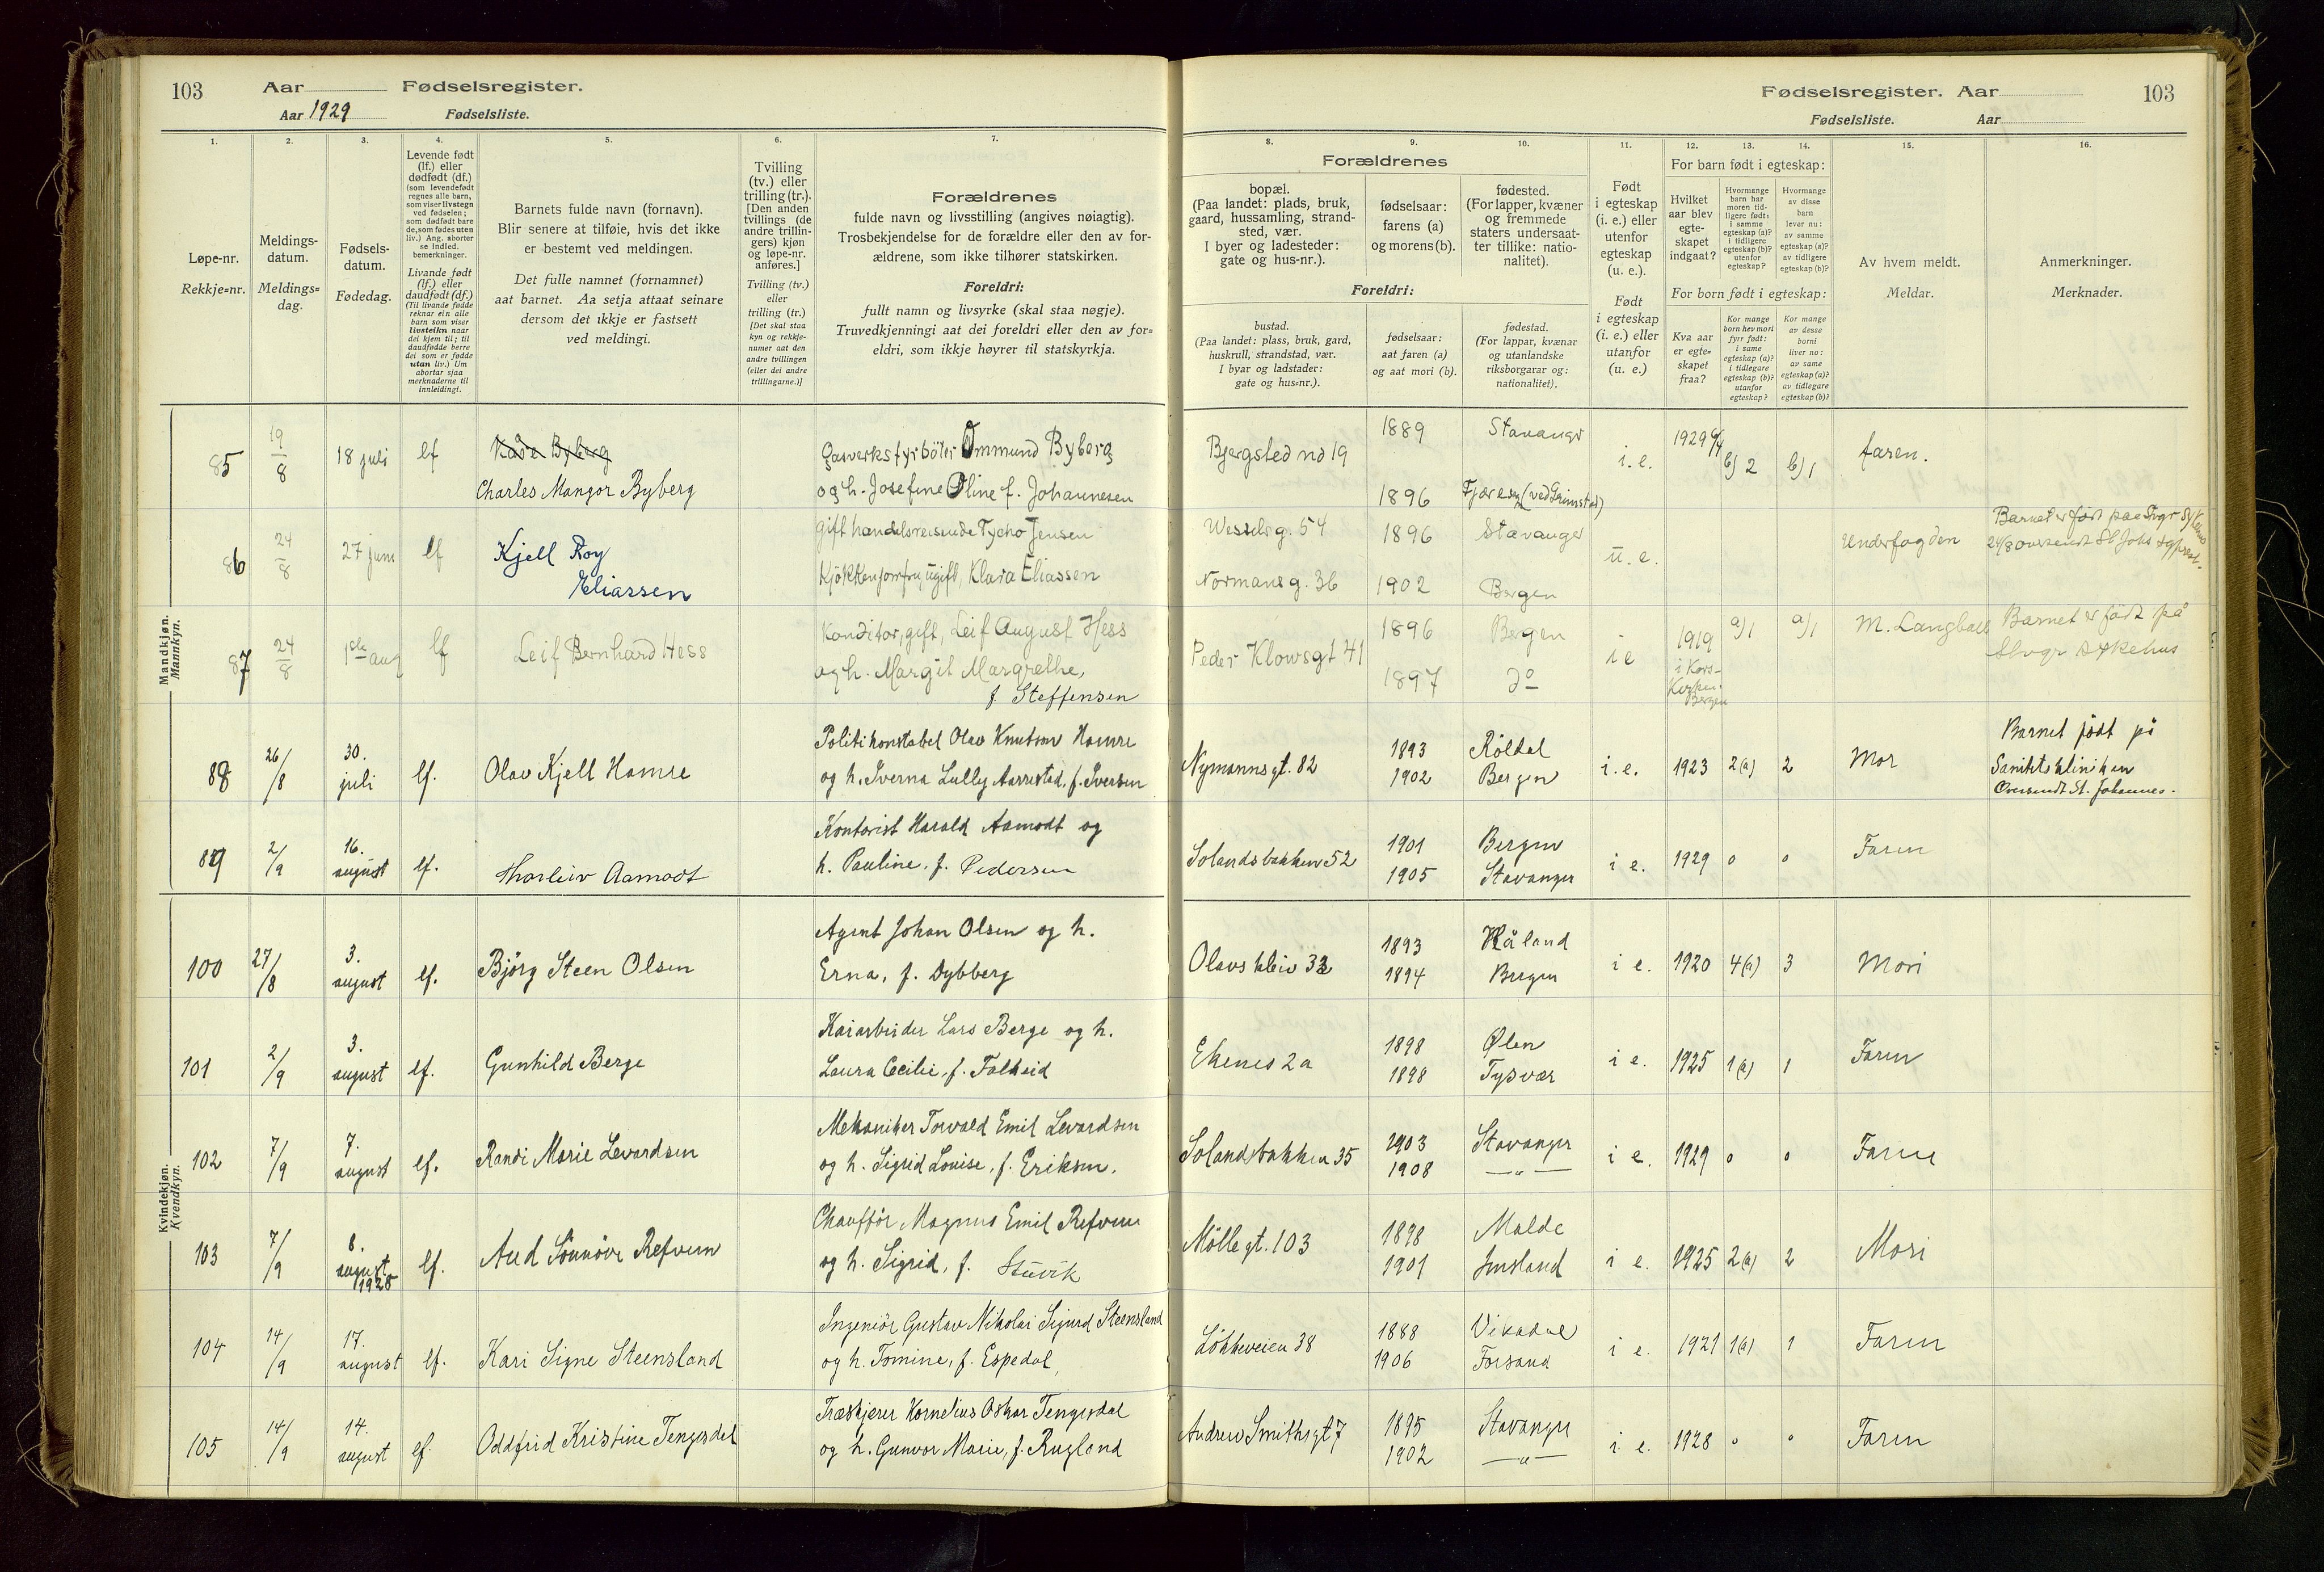 103 Aar Fødselsregister.
Aar 1929 Fødselsliste.
1. 2. 3. 4. 5. 6. 7.
Løpe-nr.
Rekkje=nr.
Meldings-
datum.
Meldings=
dag.
Fødsels-
datum.
Fødedag.
Levende født
(lf.) eller
dødfødt (df.)
(som levendefødt
regnes alle barn,
som viser livstegn
ved fødselen;
som dødfødt bare
de, som fødes uten
liv.) Ang. aborter
se indled.
bemerkninger.
Livande født
(lf.) eller
daudfødt (df.)
(Til livande fødde
reknar ein alle
barn som viser
livsteikn naar
dei kjem til; til
daudfødde berre
dei som er fødde
utan liv.) Um
abortar sjaa
merknaderne til
innleidingi.
Barnets fulde navn (fornavn).
Blir senere at tilføie, hvis det ikke
er bestemt ved meldingen.
Det fulle namnet (fornamnet)
aat barnet. Aa setja attaat seinare
dersom det ikkje er fastsett
ved meldingi.
Tvilling
(tv.) eller
trilling (tr.).
[Den anden
tvillings (de
andre trillin-
gers) kjøn
og løpe-nr.
anføres.]
Tvilling (tv.)
eller
trilling (tr.)
[Det skal staa
kyn og rekkje-
numer aat den
andre tvillingen
(eller dei andre
trillingarne.)]
Forældrenes
fulde navn og livsstilling (angives nøiagtig).
Trosbekjendelse for de forældre eller den av for-
ældrene, som ikke tilhører statskirken.
Foreldri:
fullt namn og livsyrke (skal staa nøgje).
Truvedkjenningi aat dei foreldri eller den av for=
eldri, som ikkje høyrer til statskyrkja.
Mandkjøn.
Mannkyn.
85 19/8 18 juli lf Kåre Byberg
Charles Mangor Byberg
Gasverksfyrböter Ommund Byberg
og h. Josefine Oline f. Johannesen
86 24/8 27 juni lf Kjell Roy
Eliassen
Gift handelsreisende Tycho Jensen
Kjökkenjomfru, ugift, Klara Eliassen
87 24/8 1ste aug lf Leif Bernhard Hess
Konditor, gift, Leif August Hess
og h. Margit Margrethe,
f. Steffensen
88 26/8 30. juli lf. Olav Kjell Hamre
Politikonstabel Olav Knutson Hamre
og h. Iverna Lully Aarrestad, f. Iversen
89 2/9 16. august lf. Thorleiv Aamodt
Kontorist Harald Aamodt og
h. Pauline, f. Pedersen
Kvindekjøn.
Kvendkyn.
100 27/8 3. august lf. Björg Steen Olsen
Agent Johan Olsen og h.
Erna, f. Dybberg
101 2/9 3. august lf. Gunhild Berge
Kaiarbeider Lars Berge og h.
Laura Cecilie, f. Falkeid
102 7/9 7. august lf. Randi Marie Levardsen
Mekaniker Torvald Emil Levardsen
og h. Sigrid Louise, f. Eriksen.
103 7/9 8. august 1928 lf. Aud Sönnöve Refvem
Chaufför Magnus Emil Refvem
og h. Sigrid, f. Stuvik
104 14/9 17. august lf. Kari Signe Steensland
Ingeniör Gustav Nikolai Sigurd Steensland
og h. Tomine, f. Espedal,
105 14/9 14. august lf. Oddfrid Kristine Tengesdal
Træskjerer Kornelius Oskar Tengesdal
og h. Gunvor Marie, f. Rugland
Fødselsregister. Aar 103
Fødselsliste. Aar
8. 9. 10. 11. 12. 13. 14. 15. 16.
Forældrenes
bopæl.
(Paa landet: plads, bruk,
gaard, hussamling, strand-
sted, vær.
I byer og ladesteder:
gate og hus-nr.).
fødselsaar:
farens (a)
og morens (b).
fødested.
(For lapper, kvæner
og fremmede
staters undersaat-
ter tillike: natio-
nalitet).
Foreldri:
bustad.
(Paa landet: plass, bruk, gard,
huskrull, strandstad, vær.
I byar og ladstader:
gate og hus=nr.).
fødselsaar:
aat faren (a)
og aat mori (b).
fødestad.
(For lappar, kvænar
og utanlandske
riksborgarar og:
nationalitet).
Født
i egteskap
(i. e.) eller
utenfor
egteskap
(u. e.).
Født
i egteskap
(i. e.) eller
utanfor
(u. e.)
For barn født i egteskap:
Hvilket
aar blev
egte-
skapet
indgaat?
Hvormange
barn har
moren tid-
ligere født:
i samme
egteskap (a)?
i tidligere
egteskap (b)?
utenfor
egteskap?
Hvormange
av disse
barn
lever nu:
av samme
egteskap (a)?
av tidligere
egteskap (b)?
For born født i egteskap:
Kva aar
er egte=
skapet
fraa?
Kor mange
born hev mori
fyrr født:
i same
egteskap (a)?
i tidlegare
egteskap (b)?
utanfor
egteskap?
Kor mange
av desse
borni
liver no:
av same
egteskap (a)?
av tidlegare
egteskap (b)?
Av hvem meldt.
Meldar.
Anmerkninger.
Merknader.
Bjergsted no 19 1889 Stavanger i. e. 1929 6/4 b) 2 b) 1 faren.
1896 Fjære (ved Grimstad)
Wesselsg. 54 1896 Stavanger u. e. Underfogden
Normansg. 36 1902 Bergen
Barnet er født paa Svgr
24/8 oversendt St Joh
Peder Klowsgt 41 1896 Bergen i e 1919 a/1 a/1 M. Langball
1897 do i Kors-
Kirken
Bergen
Barnet er født på
Stvgr sykehus
Nymannsgt. 82 1893 Röldal i. e. 1923 2(a) 2 Mor
1902 Bergen
Barnet født på
Sanitetskliniken
Oversendt St. Johannes.
Solandsbakken 52 1901 Bergen i e. 1929 0 0 Faren
1905 Stavanger
Olavskleiv 32 1893 Håland i e. 1920 4(a) 3 Mori
1894 Bergen
Ekenes 2a 1898 Ølen i e. 1925 1(a) 1 Faren
1898 Tysvær
Solandsbakken 35 1903 Stavanger i e. 1929 0 0 Faren
1908 — " —
Möllegt. 103 1898 Malde i e. 1925 2(a) 2 Mori
1901 Imsland
Lökkeveien 38 1888 Vikedal i e. 1921 1(a) 1 Faren
1906 Forsand
Andrew Smithsgt 7 1895 Stavanger i e. 1928 0 0 Faren
1902 — " —